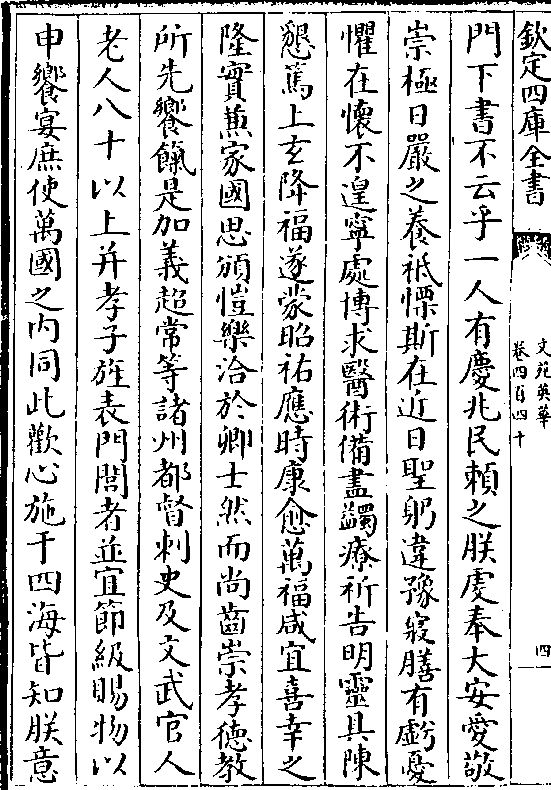 欽定四庫全書
文苑英華
卷四百四十
四
門下書不云乎一人有慶兆民賴之朕虔奉大安愛敬
崇極日嚴之養祗慄斯在近日聖躬違豫寢膳有虧憂
懼在懷不遑寧處博求醫術備盡蠲療祈告明靈具陳
懇篤上玄降福遂蒙昭祐應時康愈萬福咸宜喜幸之
隆實兼家國思頒愷樂洽於卿士然而尚齒崇孝德教
所先饗餼是加義超常等諸州都督刺史及文武官人
老人八十以上并孝子旌表門閭者並宜節級賜物以
申饗宴庶使萬國之内同此歡心施于四海皆知朕意